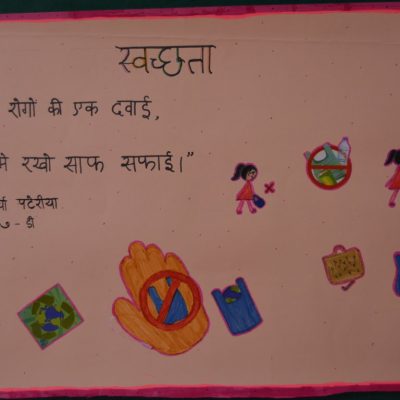 स्वच्छता
रोगों की एक दवाई,
रखो साफ सफाई।”
पटैरीया
७ - डी